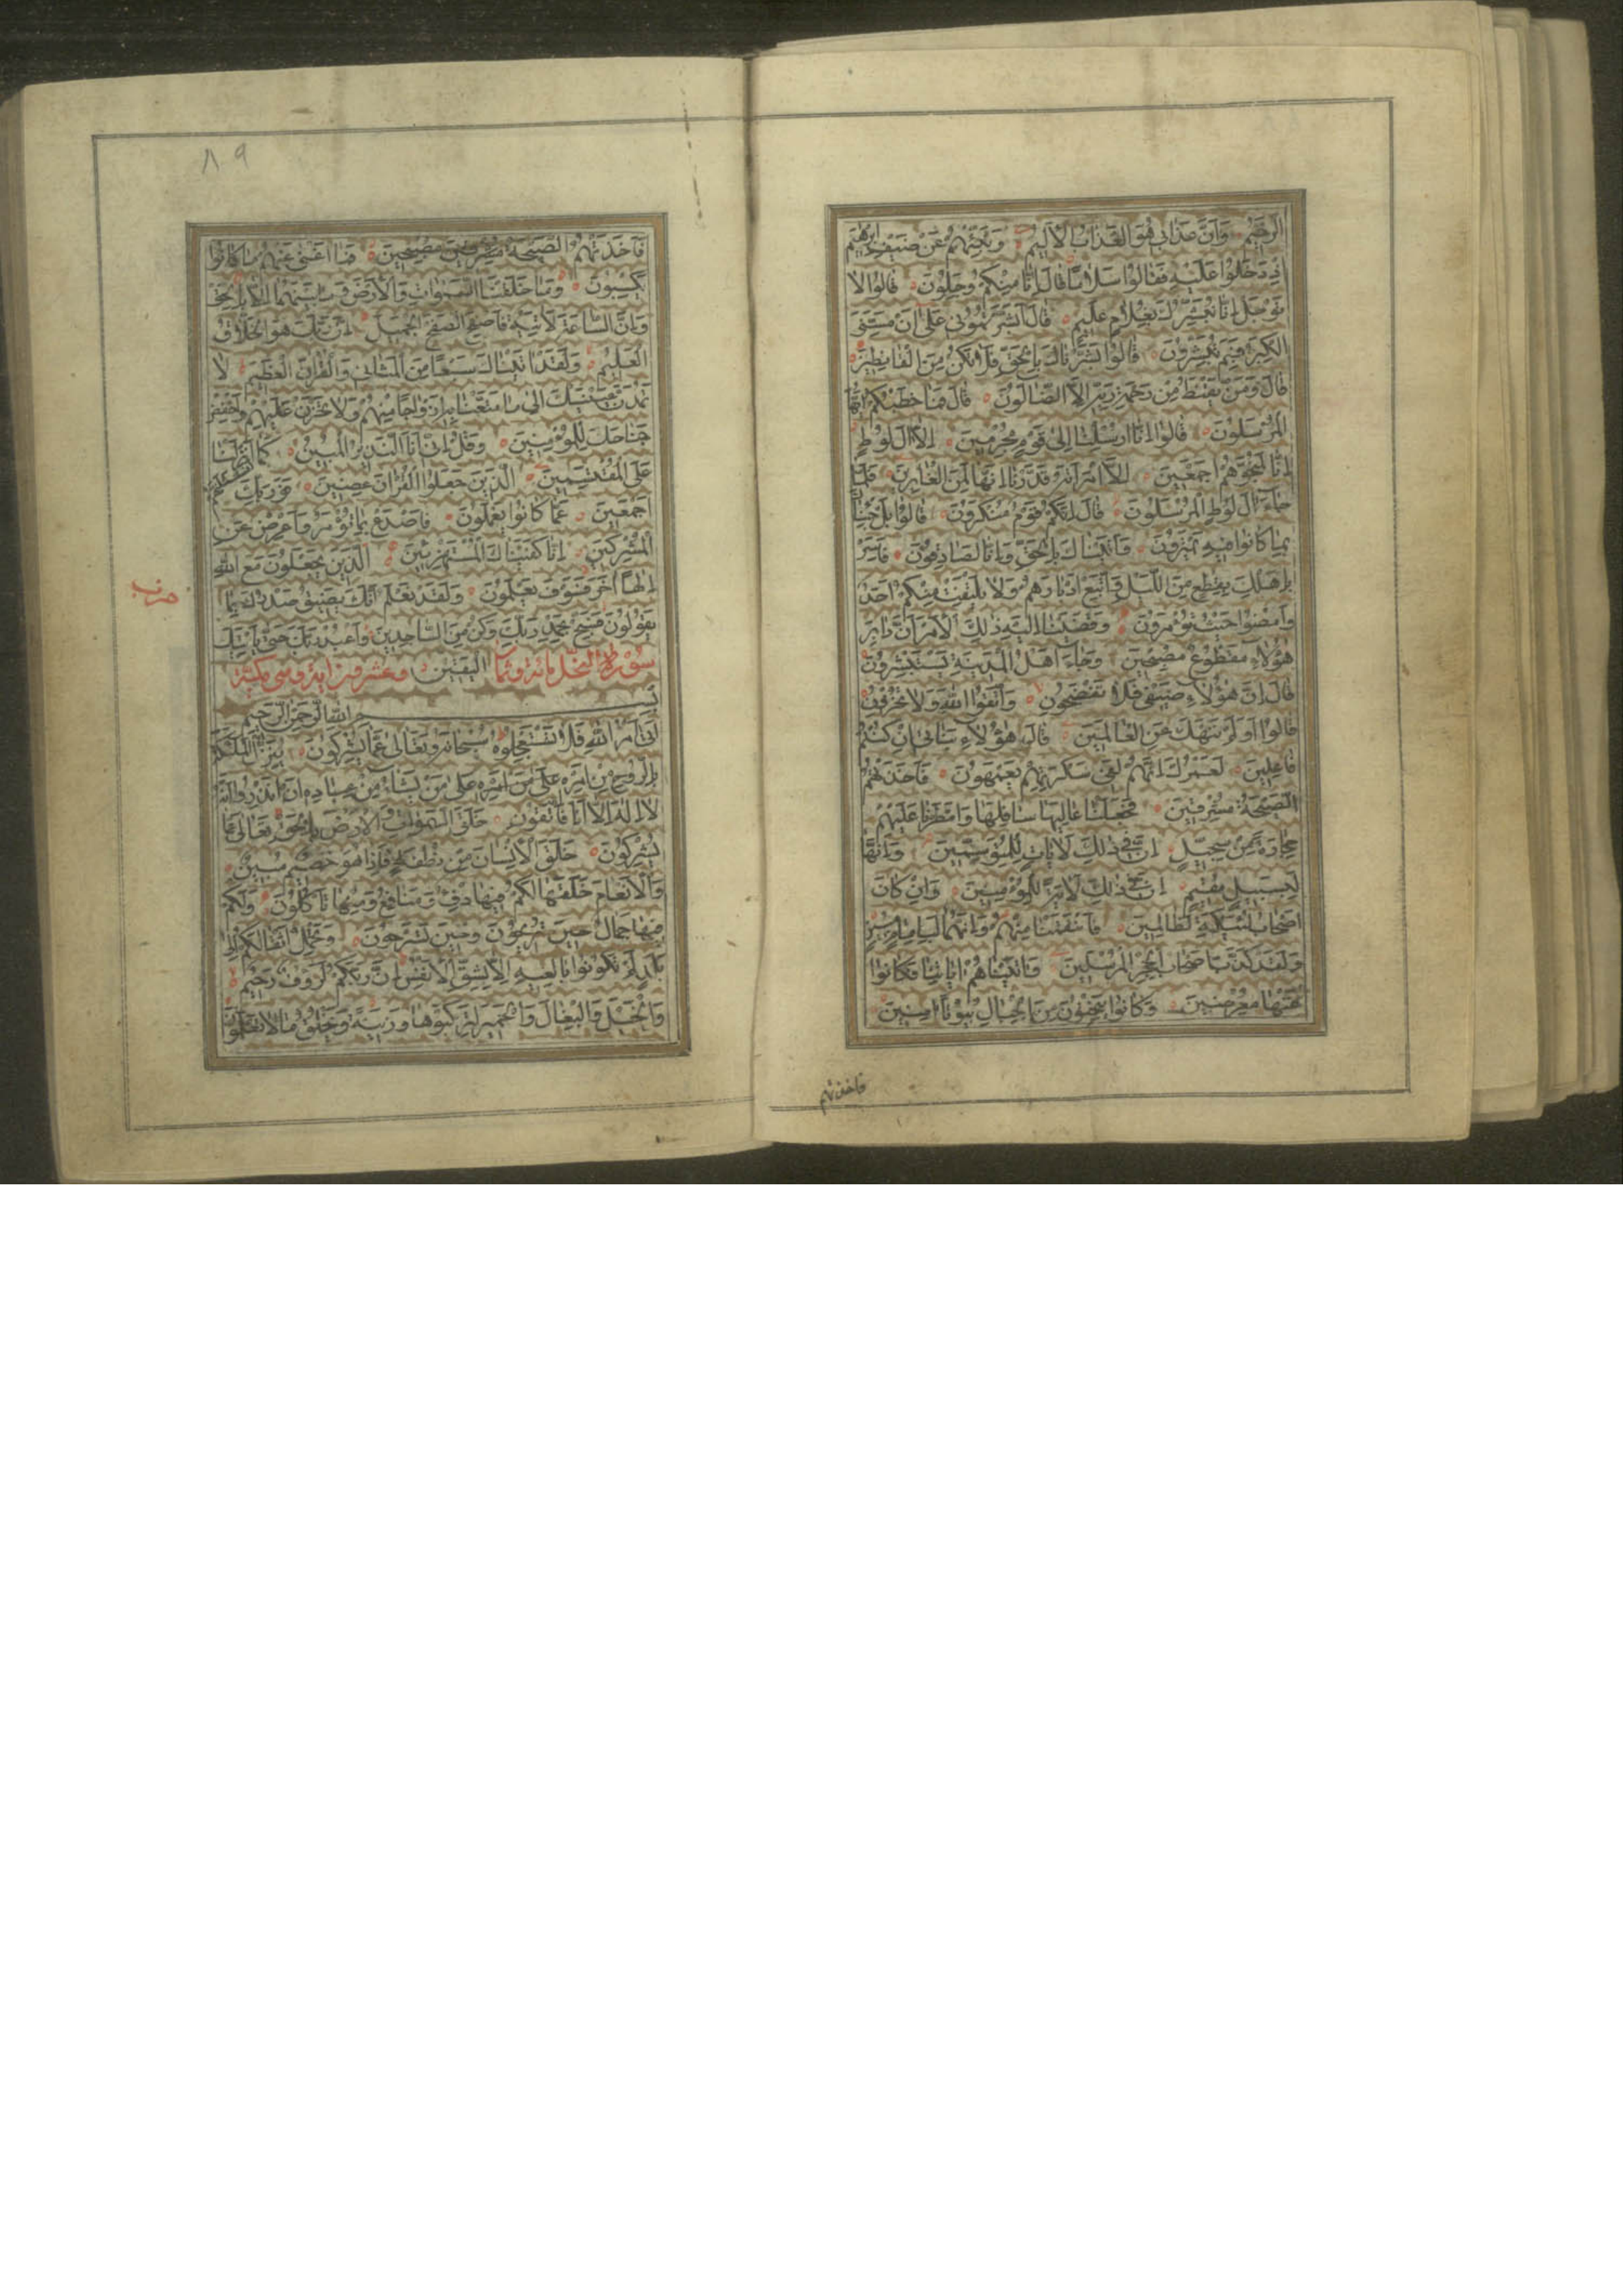 الرَّحِيمُ وَاَنَّ عَذَابِي هُوَ الْعَذَابُ الْاَلِيمُ وَنَبِّئْهُمْ عَنْ ضَيْفِ اِبْرٰهِيمَ
اِذْ دَخَلُوا عَلَيْهِ فَقَالُوا سَلَامًا قَالَ اِنَّا مِنْكُمْ وَجِلُونَ قَالُوا لَا
تَوْجَلْ اِنَّا نُبَشِّرُكَ بِغُلَامٍ عَلِيمٍ قَالَ اَبَشَّرْتُمُونِي عَلٰى اَنْ مَسَّنِيَ
الْكِبَرُ فَبِمَ تُبَشِّرُونَ قَالُوا بَشَّرْنَاكَ بِالْحَقِّ فَلَا تَكُنْ مِنَ الْقَانِطِينَ
قَالَ وَمَنْ يَقْنَطُ مِنْ رَحْمَةِ رَبِّهِ اِلَّا الضَّالُّونَ قَالَ فَمَا خَطْبُكُمْ اَيُّهَا
الْمُرْسَلُونَ قَالُوا اِنَّا اُرْسِلْنَا اِلٰى قَوْمٍ مُجْرِمِينَ اِلَّا اٰلَ لُوطٍ
اِنَّا لَمُنَجُّوهُمْ اَجْمَعِينَ اِلَّا امْرَاَتَهُ قَدَّرْنَا اِنَّهَا لَمِنَ الْغَابِرِينَ فَلَمَّا
جَاءَ اٰلَ لُوطٍ الْمُرْسَلُونَ قَالَ اِنَّكُمْ قَوْمٌ مُنْكَرُونَ قَالُوا بَلْ جِئْنَاكَ
بِمَا كَانُوا فِيهِ يَمْتَرُونَ وَاَتَيْنَاكَ بِالْحَقِّ وَاِنَّا لَصَادِقُونَ فَاَسْرِ
بِاَهْلِكَ بِقِطْعٍ مِنَ اللَّيْلِ وَاتَّبِعْ اَدْبَارَهُمْ وَلَا يَلْتَفِتْ مِنْكُمْ اَحَدٌ
وَامْضُوا حَيْثُ تُؤْمَرُونَ وَقَضَيْنَا اِلَيْهِ ذٰلِكَ الْاَمْرَ اَنَّ دَابِرَ
هٰؤُلَاءِ مَقْطُوعٌ مُصْبِحِينَ وَجَاءَ اَهْلُ الْمَدِينَةِ يَسْتَبْشِرُونَ
قَالَ اِنَّ هٰؤُلَاءِ ضَيْفِي فَلَا تَفْضَحُونِ وَاتَّقُوا اللّٰهَ وَلَا تُخْزُونِ
قَالُوا اَوَلَمْ نَنْهَكَ عَنِ الْعَالَمِينَ قَالَ هٰؤُلَاءِ بَنَاتِي اِنْ كُنْتُمْ
فَاعِلِينَ لَعَمْرُكَ اِنَّهُمْ لَفِي سَكْرَتِهِمْ يَعْمَهُونَ فَاَخَذَتْهُمُ
الصَّيْحَةُ مُشْرِقِينَ فَجَعَلْنَا عَالِيَهَا سَافِلَهَا وَاَمْطَرْنَا عَلَيْهِمْ
حِجَارَةً مِنْ سِجِّيلٍ اِنَّ فِي ذٰلِكَ لَاٰيَاتٍ لِلْمُتَوَسِّمِينَ وَاِنَّهَا
لَبِسَبِيلٍ مُقِيمٍ اِنَّ فِي ذٰلِكَ لَاٰيَةً لِلْمُؤْمِنِينَ وَاِنْ كَانَ
اَصْحَابُ الْاَيْكَةِ لَظَالِمِينَ فَانْتَقَمْنَا مِنْهُمْ وَاِنَّهُمَا لَبِاِمَامٍ مُبِينٍ
وَلَقَدْ كَذَّبَ اَصْحَابُ الْحِجْرِ الْمُرْسَلِينَ وَاٰتَيْنَاهُمْ اٰيَاتِنَا فَكَانُوا
عَنْهَا مُعْرِضِينَ وَكَانُوا يَنْحِتُونَ مِنَ الْجِبَالِ بُيُوتًا اٰمِنِينَ
فاخذتهم
٨٩
فَاَخَذَتْهُمُ الصَّيْحَةُ مُصْبِحِينَ فَمَا اَغْنٰى عَنْهُمْ مَا كَانُوا
يَكْسِبُونَ وَمَا خَلَقْنَا السَّمٰوَاتِ وَالْاَرْضَ وَمَا بَيْنَهُمَا اِلَّا بِالْحَقِّ
وَاِنَّ السَّاعَةَ لَاٰتِيَةٌ فَاصْفَحِ الصَّفْحَ الْجَمِيلَ اِنَّ رَبَّكَ هُوَ الْخَلَّاقُ
الْعَلِيمُ وَلَقَدْ اٰتَيْنَاكَ سَبْعًا مِنَ الْمَثَانِي وَالْقُرْاٰنَ الْعَظِيمَ لَا
تَمُدَّنَّ عَيْنَيْكَ اِلٰى مَا مَتَّعْنَا بِهِ اَزْوَاجًا مِنْهُمْ وَلَا تَحْزَنْ عَلَيْهِمْ وَاخْفِضْ
جَنَاحَكَ لِلْمُؤْمِنِينَ وَقُلْ اِنِّي اَنَا النَّذِيرُ الْمُبِينُ كَمَا اَنْزَلْنَا
عَلَى الْمُقْتَسِمِينَ الَّذِينَ جَعَلُوا الْقُرْاٰنَ عِضِينَ فَوَرَبِّكَ لَنَسْئَلَنَّهُمْ
اَجْمَعِينَ عَمَّا كَانُوا يَعْمَلُونَ فَاصْدَعْ بِمَا تُؤْمَرُ وَاَعْرِضْ عَنِ
الْمُشْرِكِينَ اِنَّا كَفَيْنَاكَ الْمُسْتَهْزِئِينَ الَّذِينَ يَجْعَلُونَ مَعَ اللّٰهِ
اِلٰهًا اٰخَرَ فَسَوْفَ يَعْلَمُونَ وَلَقَدْ نَعْلَمُ اَنَّكَ يَضِيقُ صَدْرُكَ بِمَا
حزب
يَقُولُونَ فَسَبِّحْ بِحَمْدِ رَبِّكَ وَكُنْ مِنَ السَّاجِدِينَ وَاعْبُدْ رَبَّكَ حَتّٰى يَاْتِيَكَ
الْيَقِينُ
سورة النحل مائة وثما وعشرون اية وهي مكية
بسم اللّٰه الرَّحْمٰنِ الرَّحِيمِ
اَتٰى اَمْرُ اللّٰهِ فَلَا تَسْتَعْجِلُوهُ سُبْحَانَهُ وَتَعَالٰى عَمَّا يُشْرِكُونَ يُنَزِّلُ الْمَلٰئِكَةَ
بِالرُّوحِ مِنْ اَمْرِهِ عَلٰى مَنْ اَمْرِهِ عَلٰى مَنْ يَشَاءُ مِنْ عِبَادِهِ اَنْ اَنْذِرُوا اَنَّهُ
لَا اِلٰهَ اِلَّا اَنَا فَاتَّقُونِ خَلَقَ السَّمٰوَاتِ وَالْاَرْضَ بِالْحَقِّ تَعَالٰى عَمَّا
يُشْرِكُونَ خَلَقَ الْاِنْسَانَ مِنْ نُطْفَةٍ فَاِذَا هُوَ خَصِيمٌ مُبِينٌ
وَالْاَنْعَامَ خَلَقَهَا لَكُمْ فِيهَا دِفْءٌ وَمَنَافِعُ وَمِنْهَا تَاْكُلُونَ وَلَكُمْ
فِيهَا جَمَالٌ حِينَ تُرِيحُونَ وَحِينَ تَسْرَحُونَ وَتَحْمِلُ اَثْقَالَكُمْ اِلٰى
بَلَدٍ لَمْ تَكُونُوا بَالِغِيهِ اِلَّا بِشِقِّ الْاَنْفُسِ اِنَّ رَبَّكُمْ لَرَؤُفٌ رَحِيمٌ
وَالْخَيْلَ وَالْبِغَالَ وَالْحَمِيرَ لِتَرْكَبُوهَا وَزِينَةً وَيَخْلُقُ مَا لَا تَعْلَمُونَ